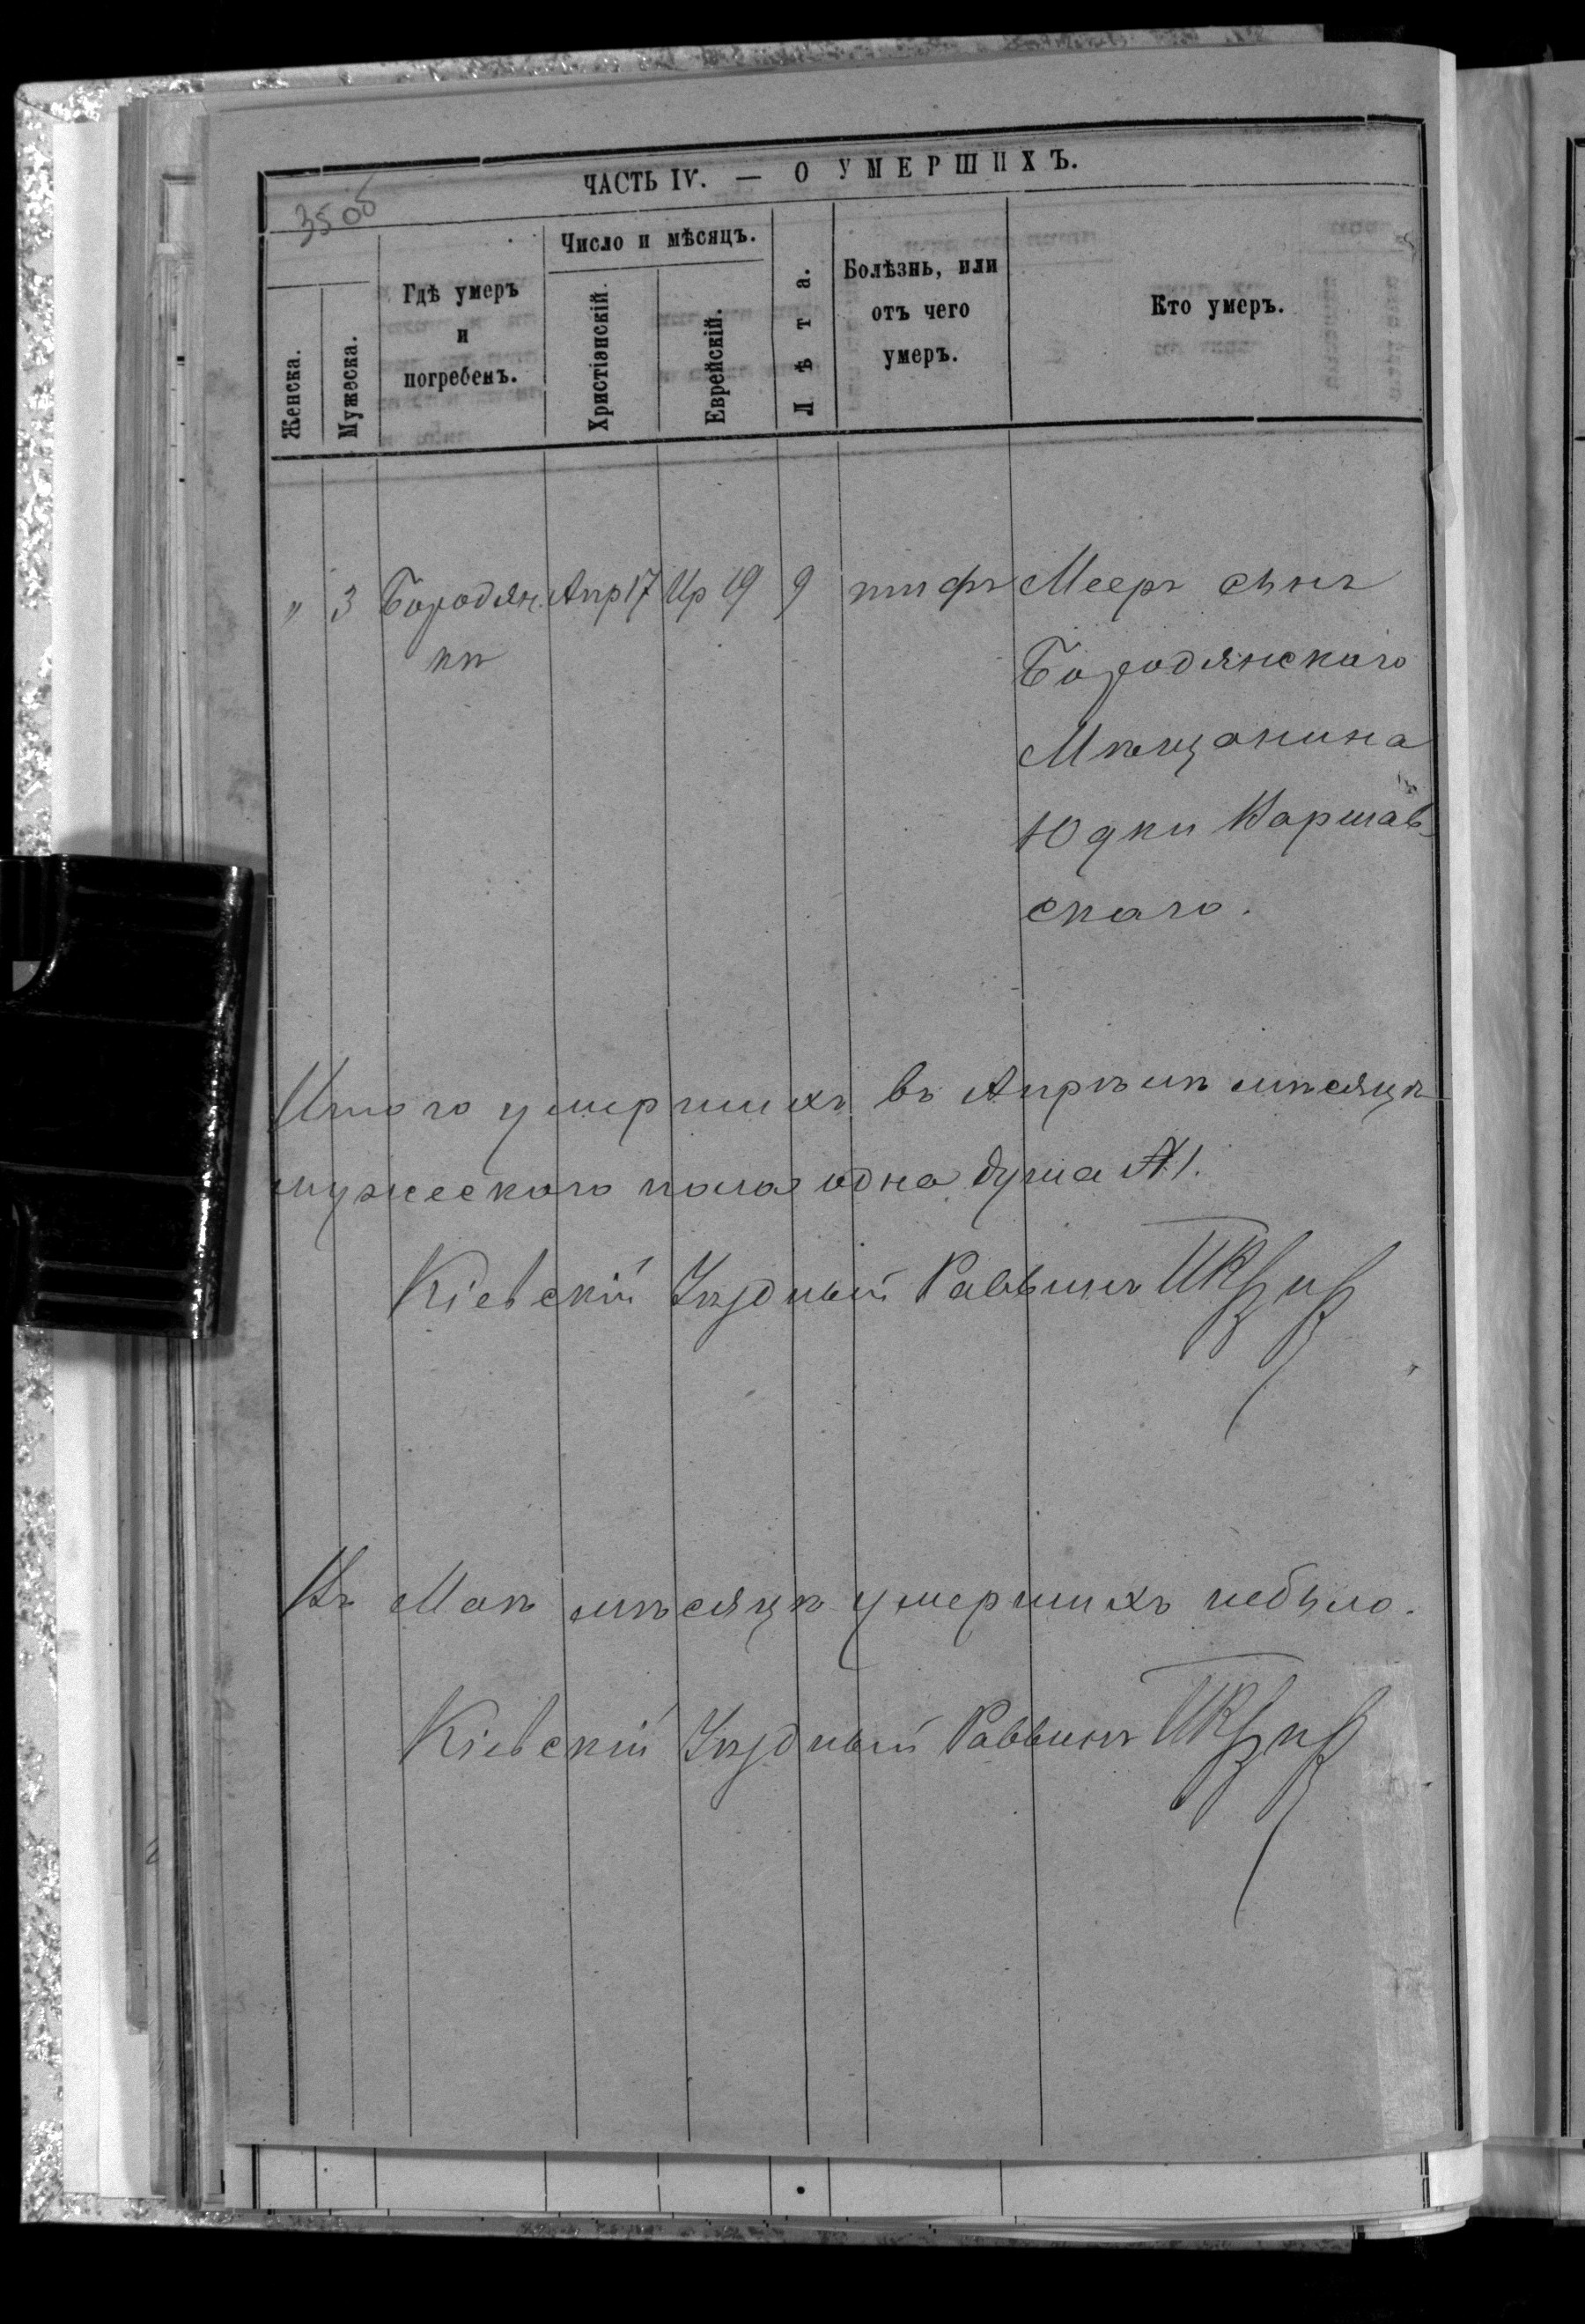 ЧАСТЬ IV. — О УМЕРШИХЪ.
350б
Женска.
Мужеска.
Гдѣ умеръ
и
погребенъ.
Число и мѣсяцъ.
Христіанскій.
Еврейскій.
Лѣта.
Болѣзнь, или
отъ чего
умеръ.
Кто умеръ.
" 3 Бородян. Апр 17 Ир 19 9 тифъ Мееръ сынъ
кѣ Бородянскаго
Мѣщанина
Юдки Варшав-
скаго.
Итого умершихъ въ Апрѣлѣ мѣсяцѣ
мужескаго пола одна душа №1.
Кіевскій Уѣздный Раввинъ
Въ Маѣ мѣсяцѣ умершихъ небыло.
Кіевскій Уѣздный Раввинъ